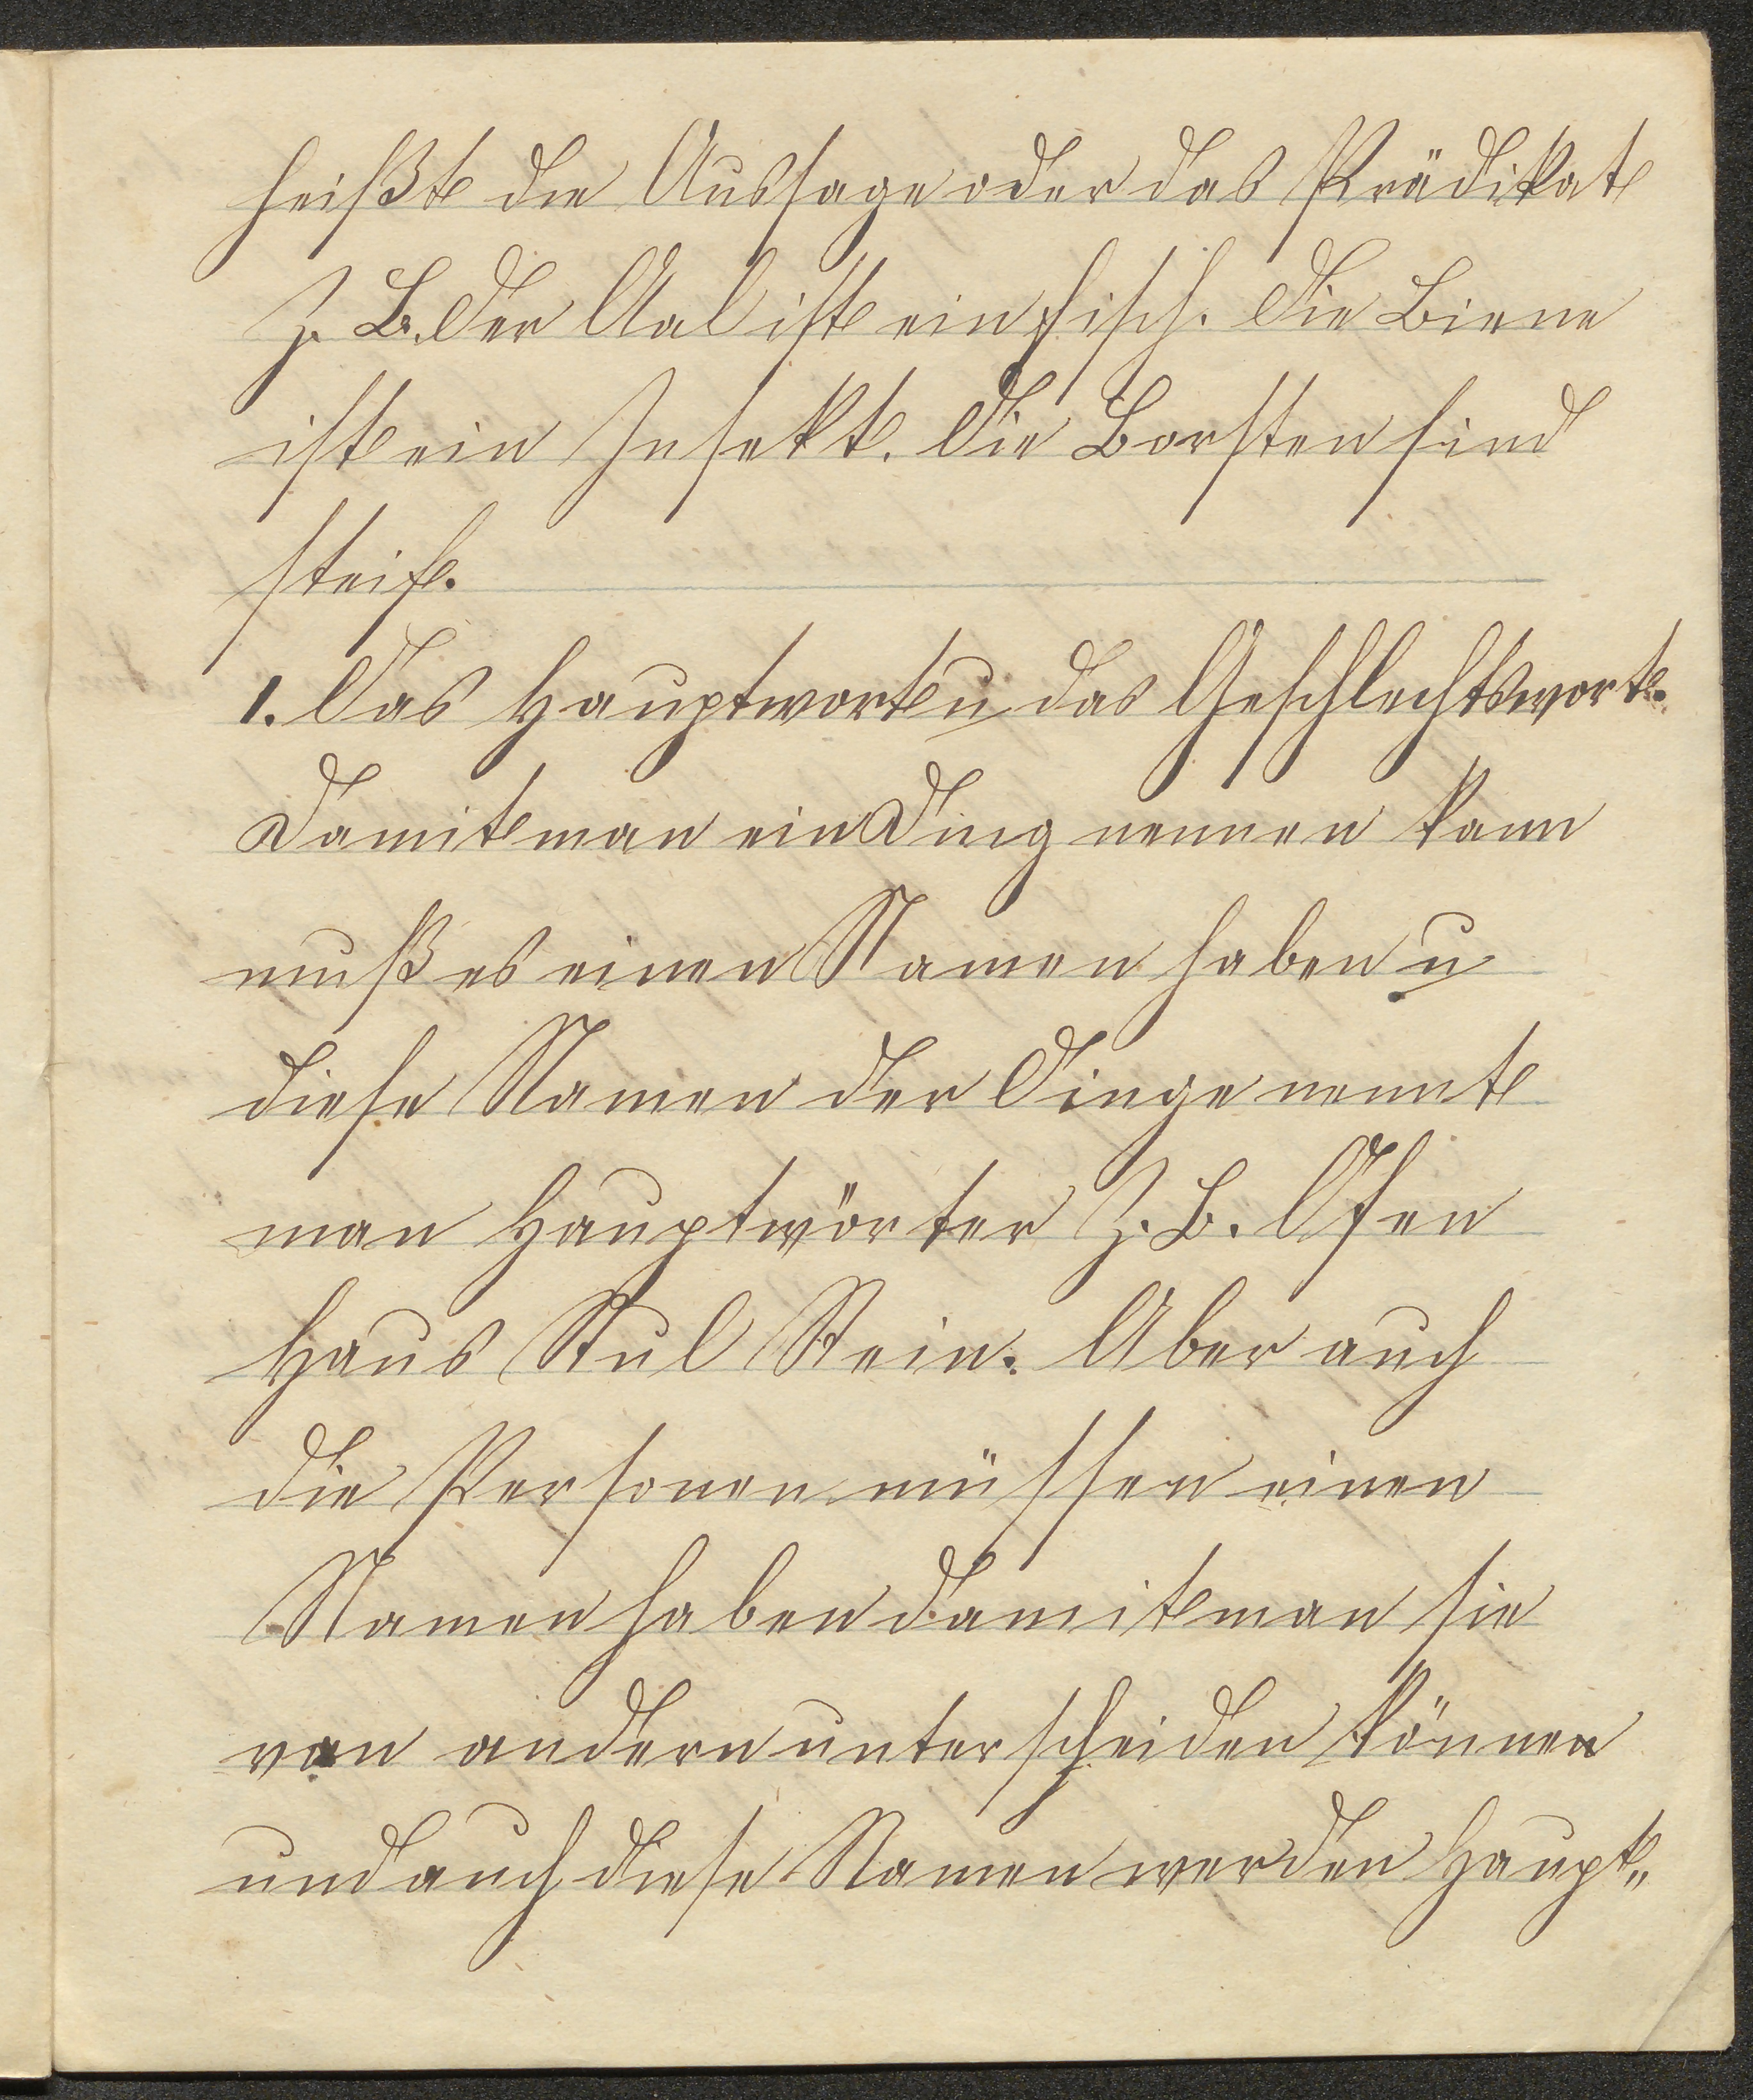 heißt die Aussage oder das Prädikat
z. B. Der Aal ist ein Fisch. Die Biene
ist ein Insekt. Die Borsten sind
steif.
1. Das Hauptwort u das Geschlechtswort.
Damit man ein Ding nennen kann
muß es einen Namen haben u
diese Namen der Dinge nennt
man Hauptwörter Z. B. Ofen
Haus Stul Stein. Aber auch
die Personen müssen einen
Namen haben damit man sie
von andern unterscheiden können
und auch diese Namen werden Haupt„